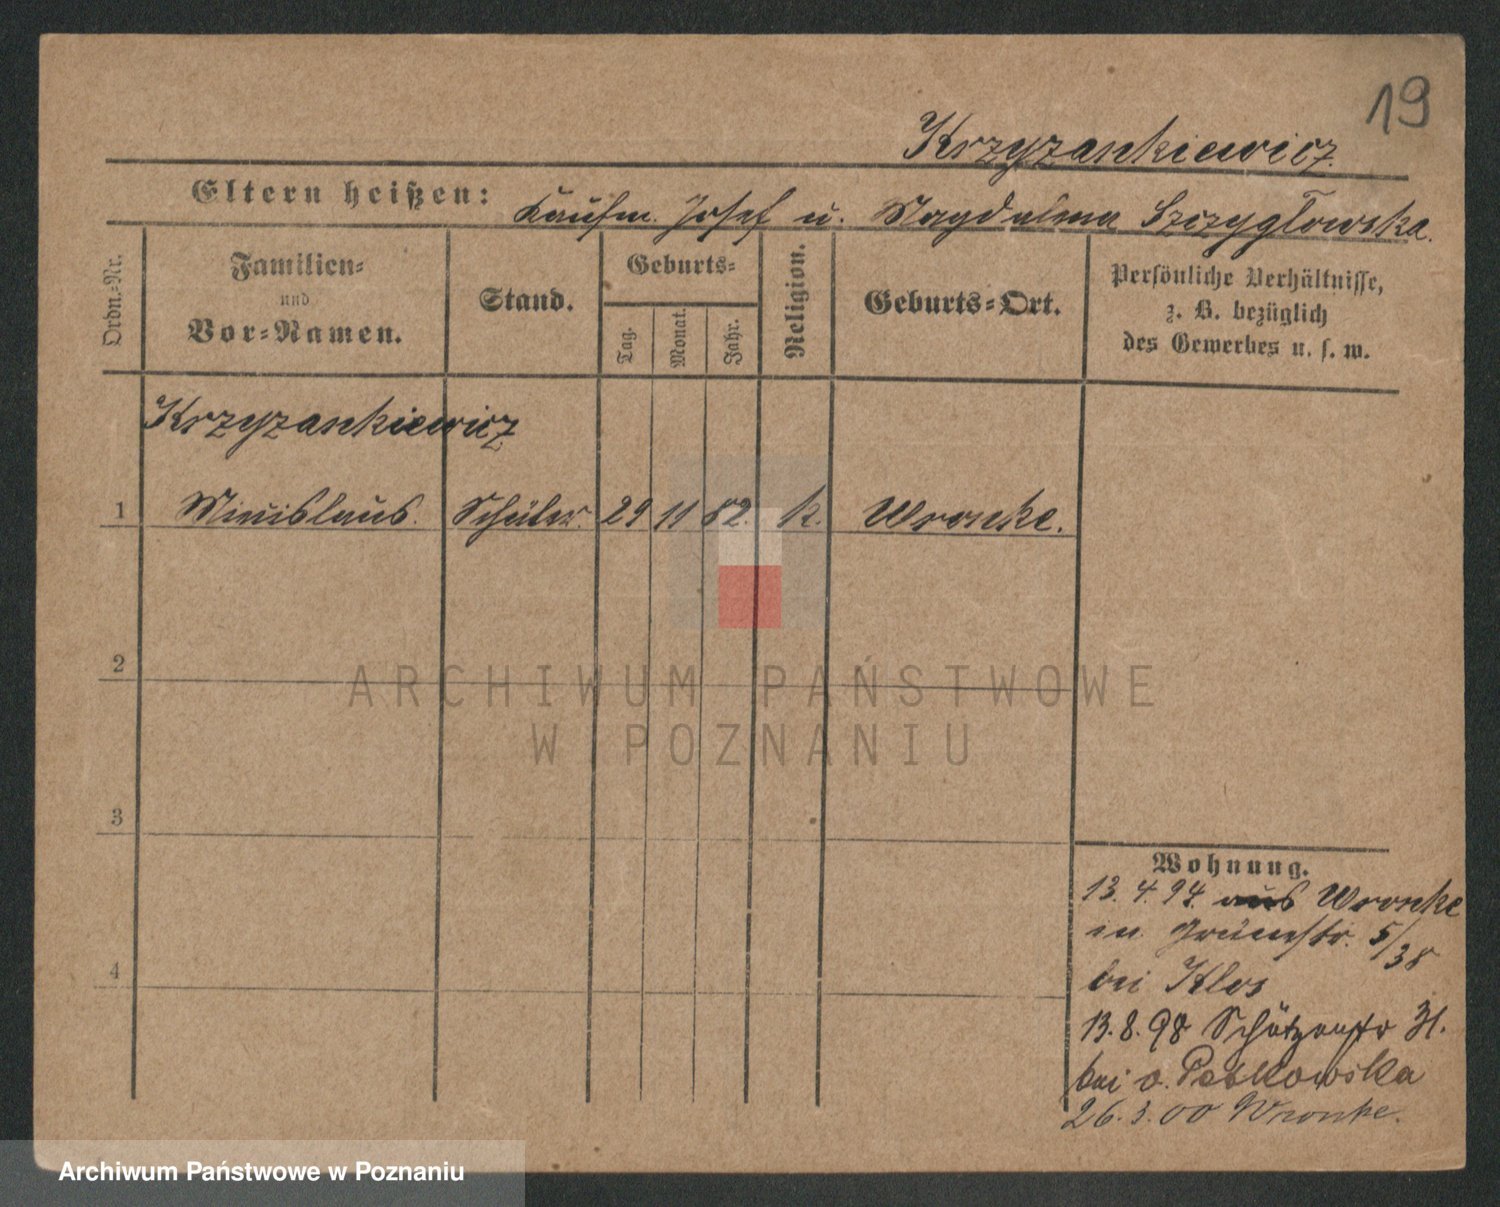 19
Krzyzankiewicz
Eltern heißen: Kaufm. Josef u. Magdalena Szczygłowska.
Ordn.-Nr.
Familien-
und
Vor-Namen.
Stand.
Geburts-
Tag.
Monat.
Jahr.
Religion.
Geburts-Ort.
Persönliche Verhältnisse,
z. B. bezüglich
des Gewerbes u. s. w.
Krzyzankiewicz
1 Schüler. 29 11 82. k. Wronke.
2
3
4
Wohnung.
13.4.94. aus Wronke
in Grünstr. 5/38
bei Klos
13.8.98 Schützenstr 31.
bei v.
26.3.00 Wronke.
ARCHIWUM PAŃSTWOWE
W POZNANIU
Archiwum Państwowe w Poznaniu